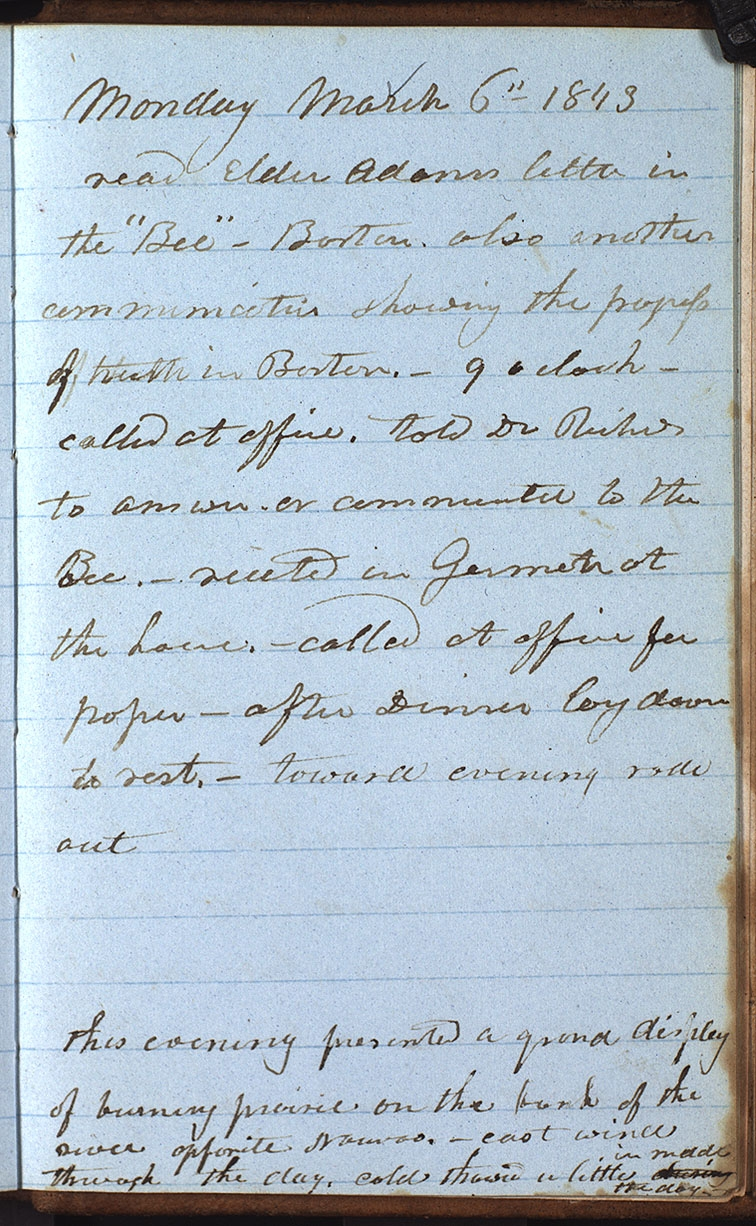 Monday March 6th 1843
read Elder Adams letter in
the "Bee" - Boston. also another
communication showing the progress
of truth in Boston. - 9 o clock -
called at office. told Dr Richards
to answer. or communicate to the
Bee. - recited in German at
the house. - called at office for
paper - after Dinner lay down
to rest. - toward evening rode
out
this evening presented a grand display
of burning prairie on the bank of the
river opposite Nauvoo. - east wind
through the day. cold thawed a little in middle
the day -